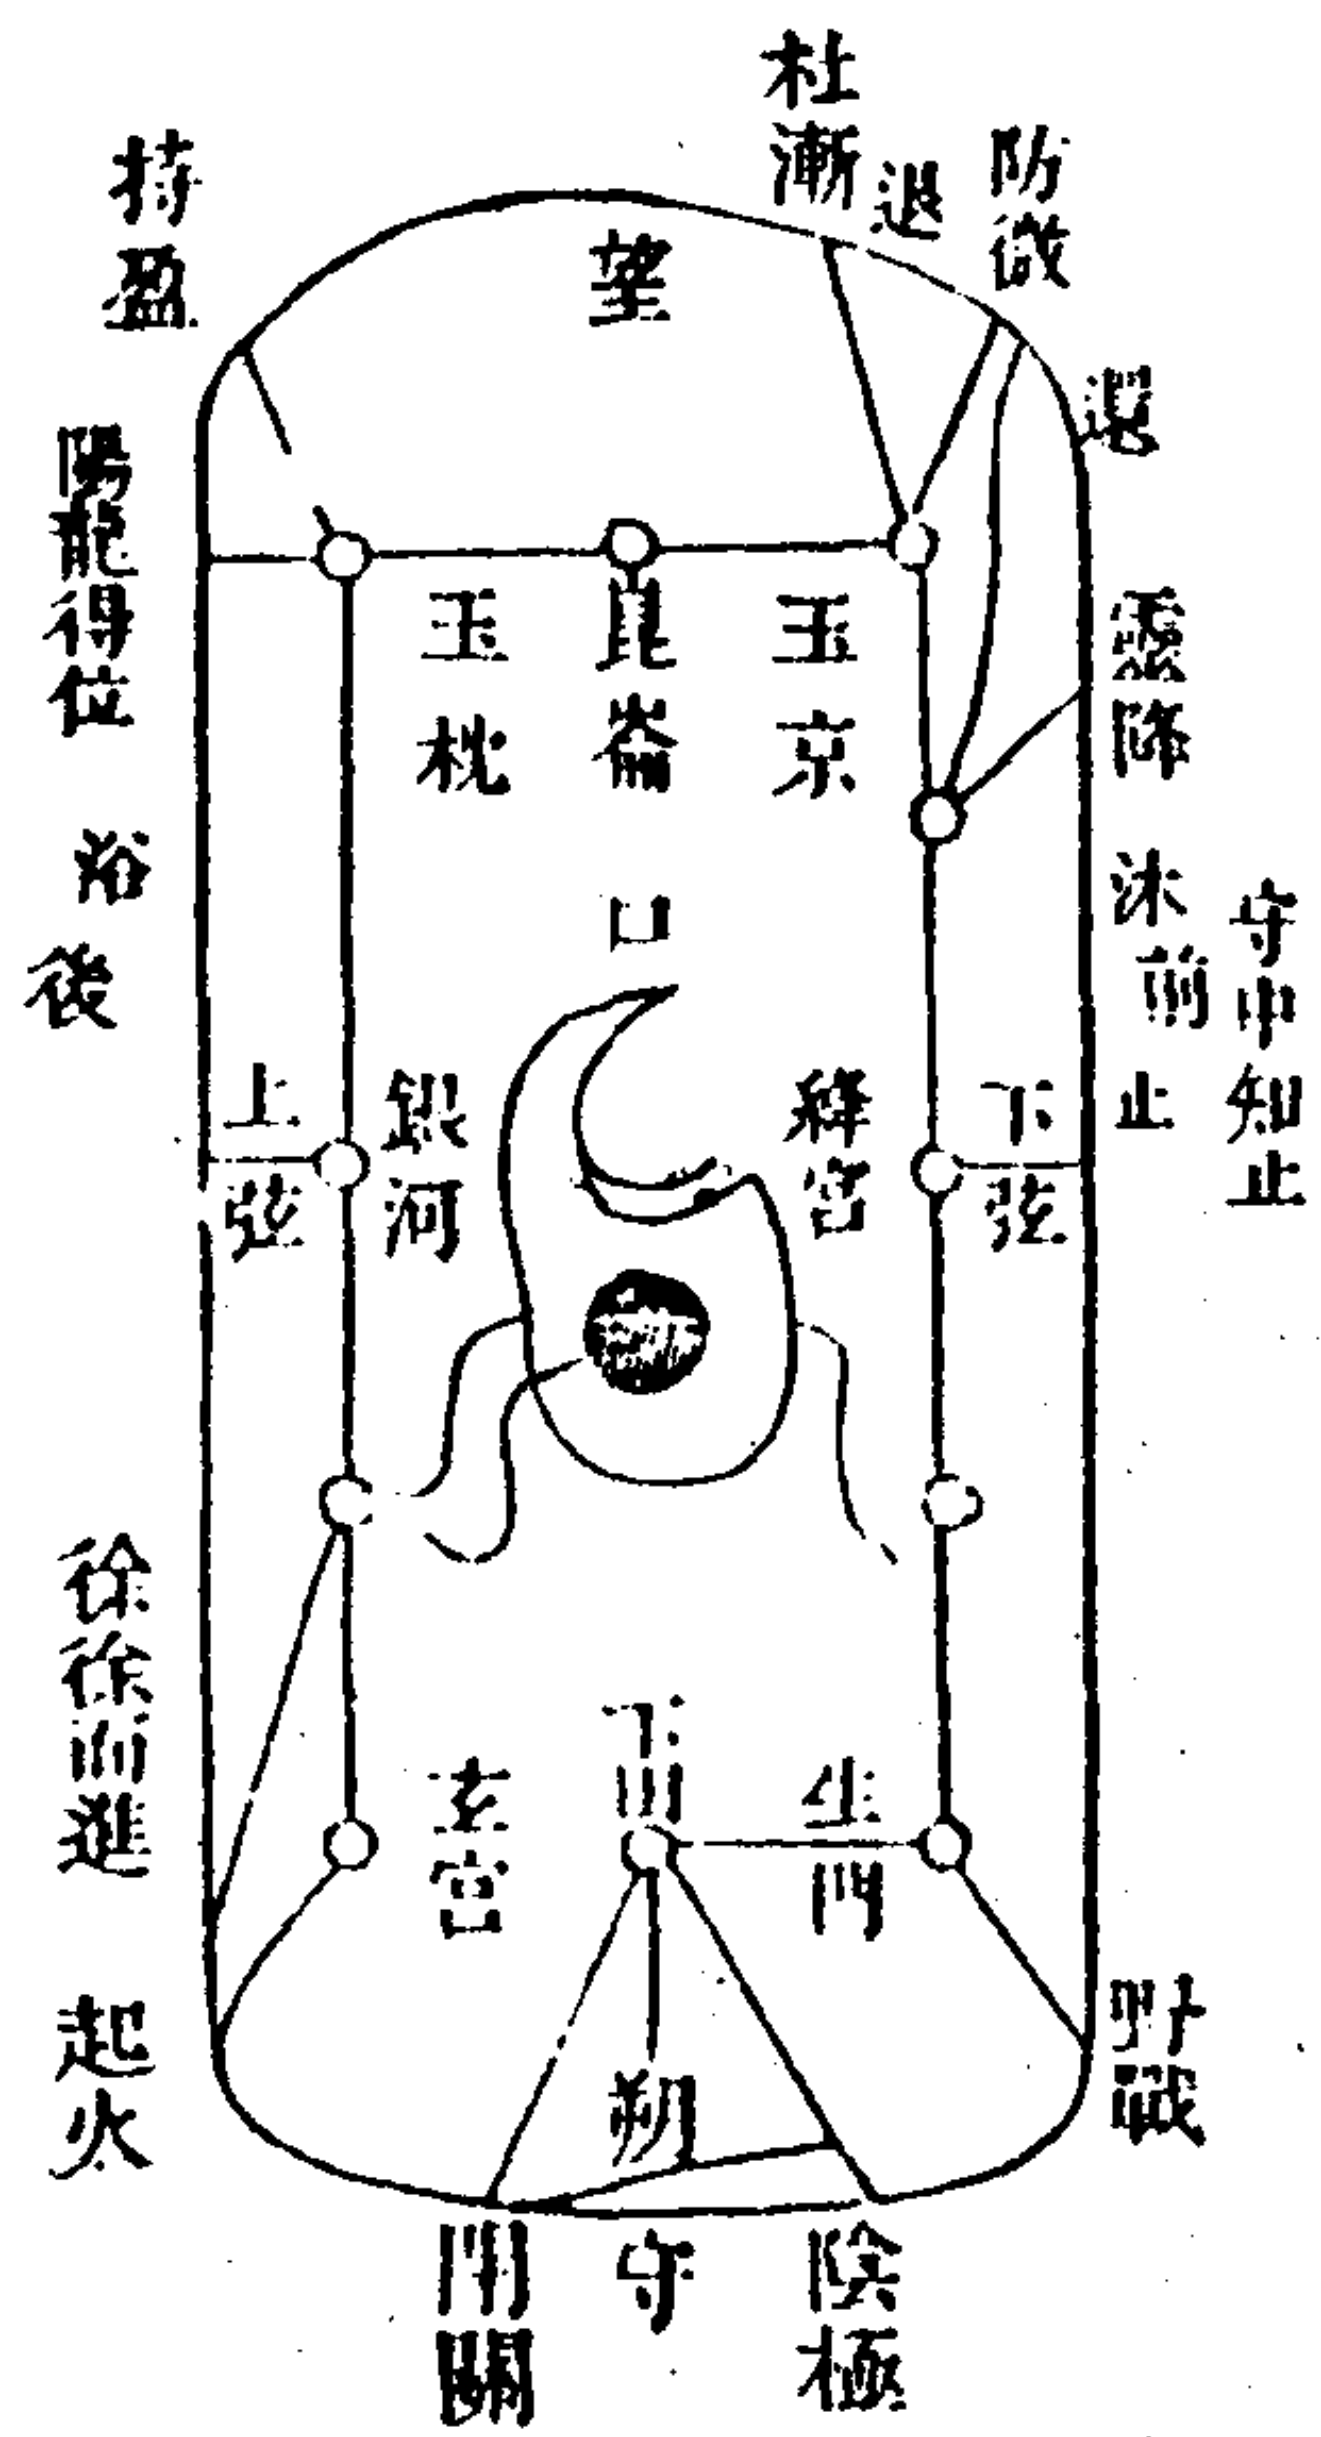 杜漸
防微
退
持盈
望
還
陽龍得位
玉枕
崑崙
玉京
霊降
浴
後
口
沐
前
止
守中知止
上弦
銀河
絳宮
下弦
徐徐而進
玄宮
下田
生門
起火
野戰
朔
閉關
守
陰極